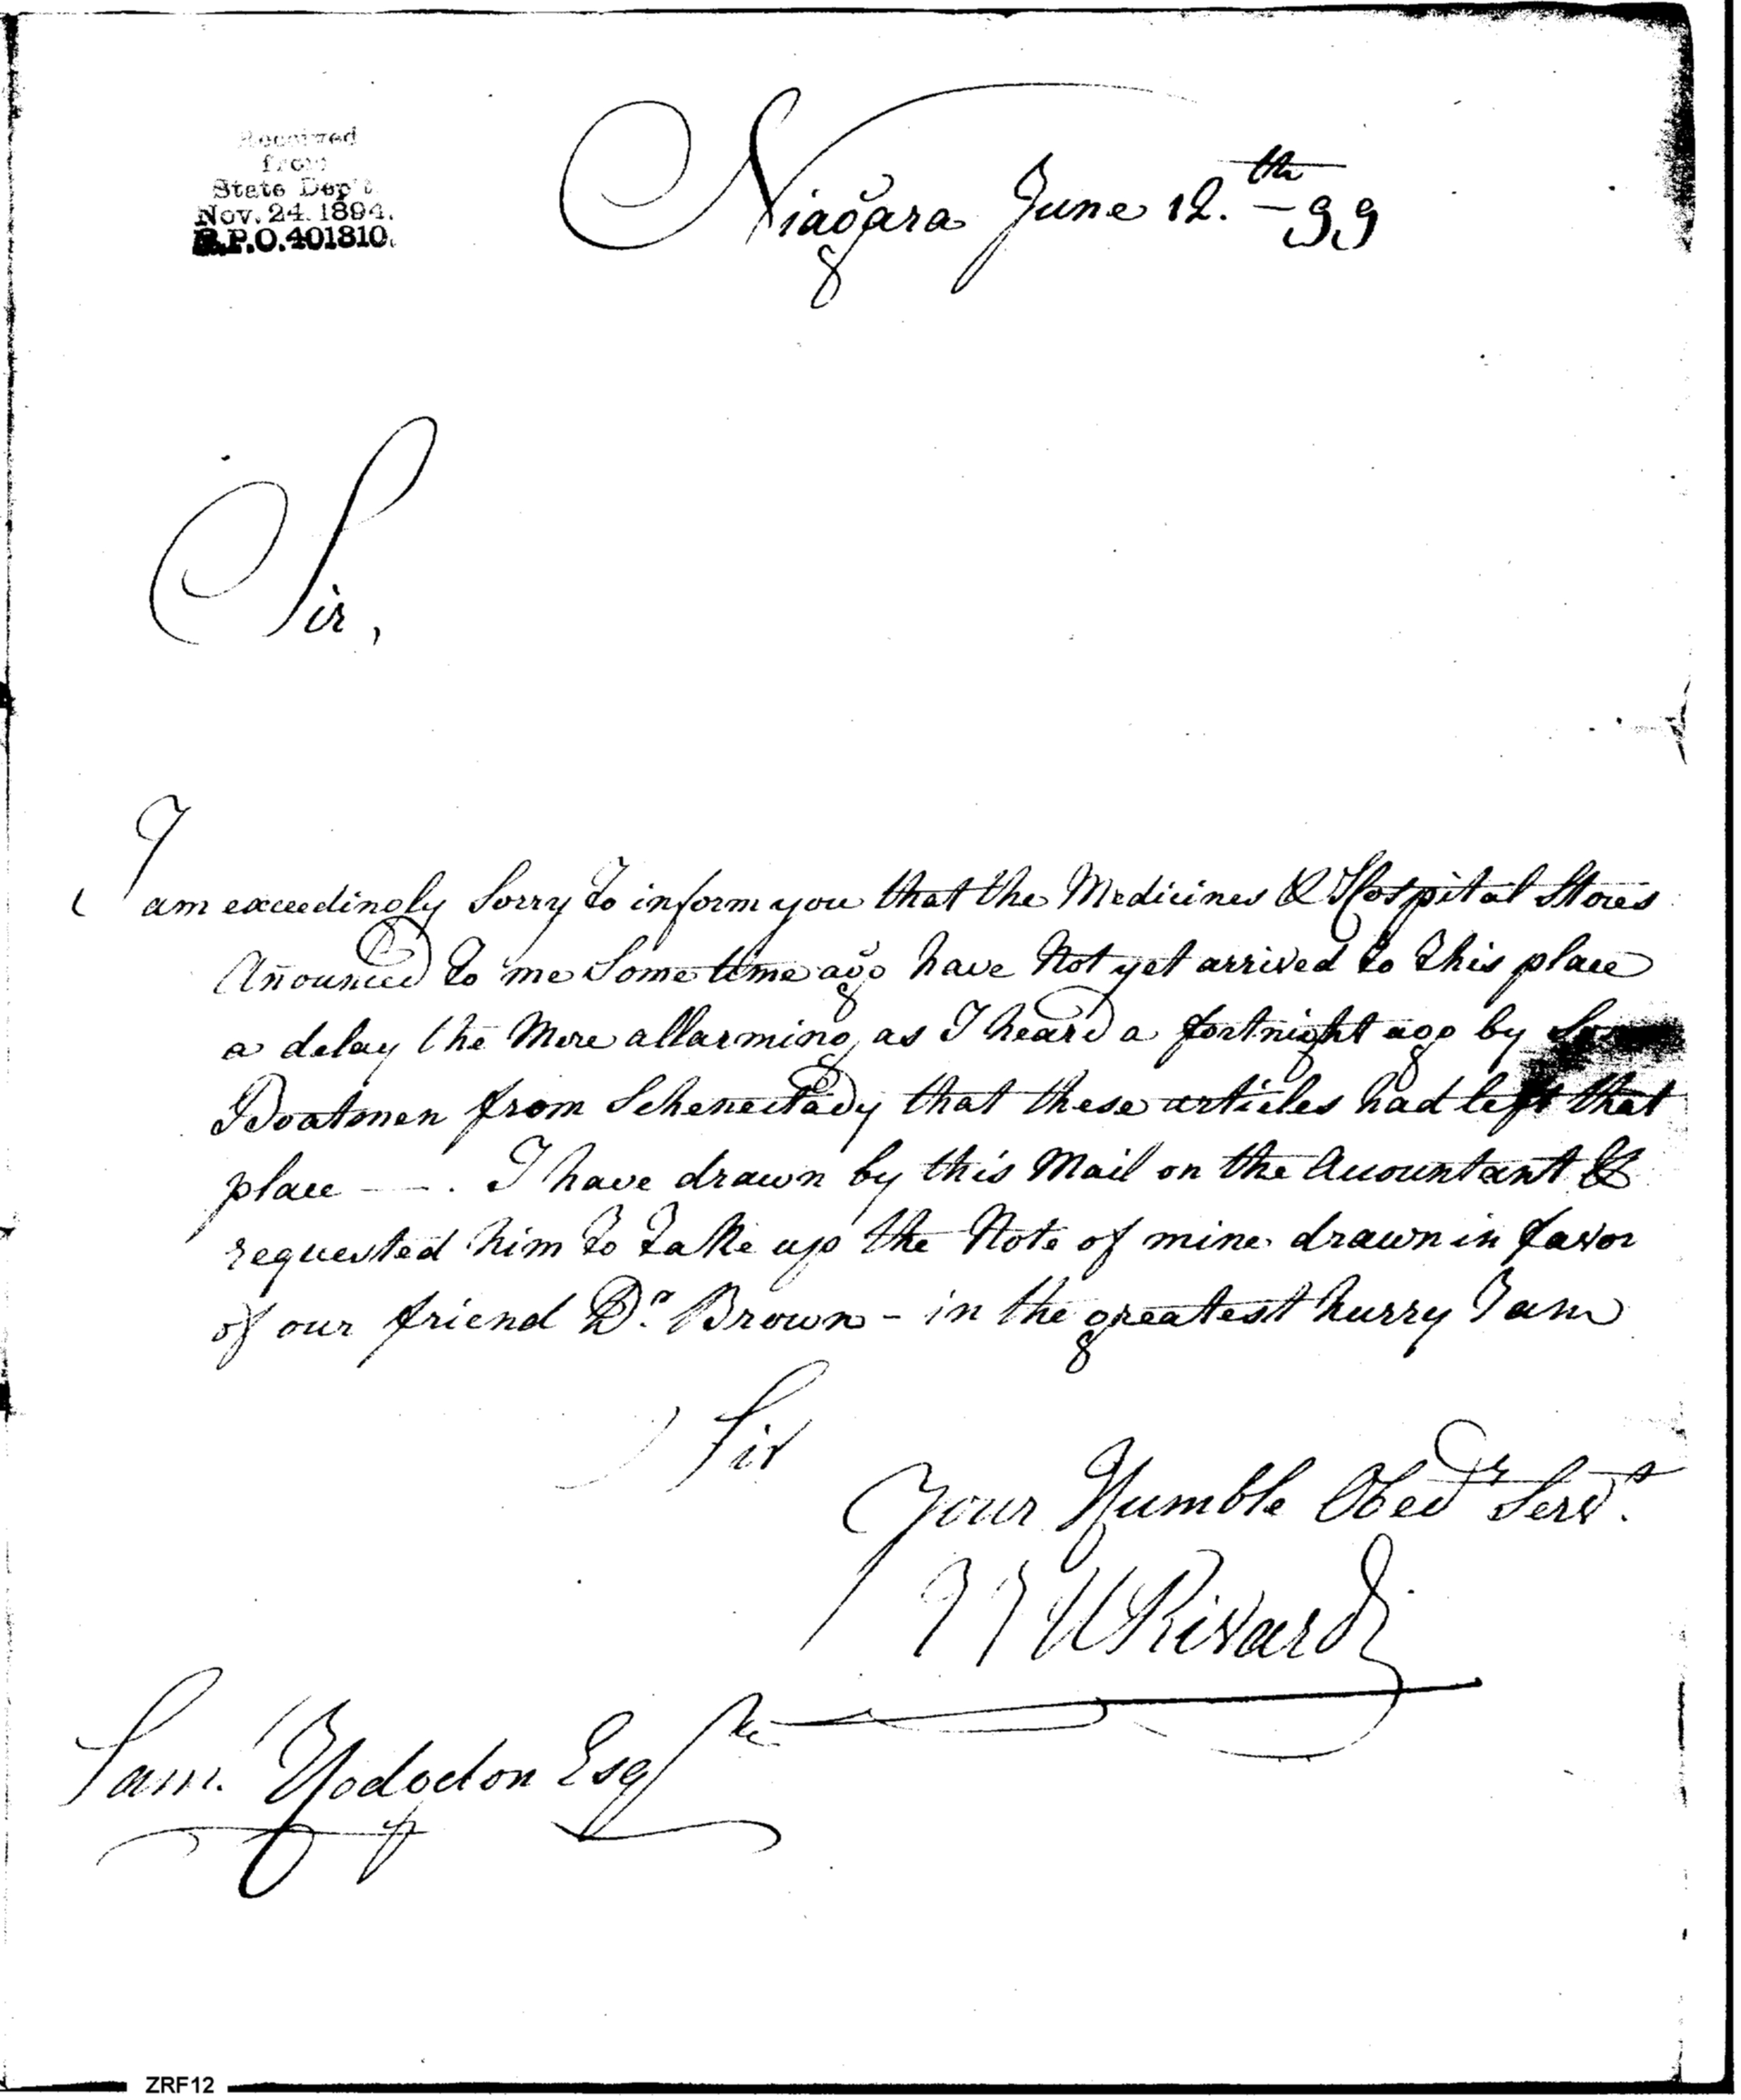 Received
from
State Dep't
Nov. 24. 1894.
R.P.O. 401810.
Niagara June 12.th – 99
Sir,
I
am exceedingly Sorry to inform you that the Medicines & Hospital Stores
Anounced to me Some time ago have Not yet arrived to this place
a delay the More allarming, as I heard a fortnight ago by
Boatmen from Schenectady that these articles had left that
place — . I have drawn by this Mail on the Accountant &
requested him to take up the Note of mine drawn in favor
of our friend Dr. Brown - in the greatest hurry I am
Sir
Your Humble Obedt Servt.
J J U Rivardi
Sam. Hodgdon Esqre
ZRF12